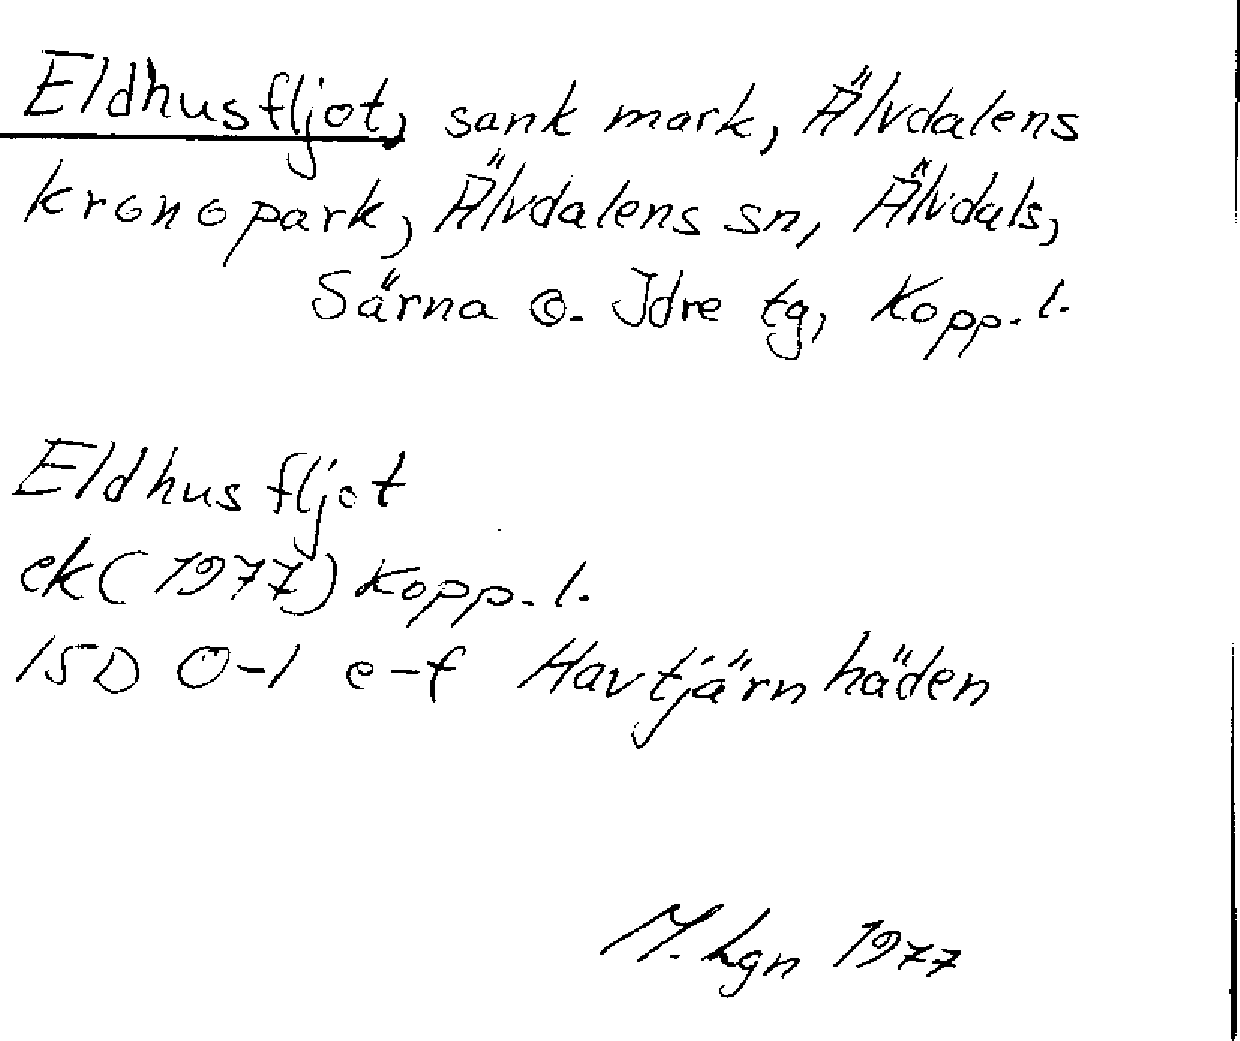 Eldhusfljot, sank mark, Älvdalens
kronopark, Älvdalens sn, Älvdals,
Särna o. Idre tg, Kopp. l.
Eldhusfljot
ek (1977) Kopp. l.
15D 0-1 e-f Havtjärnhäden
M. Lgn 1977